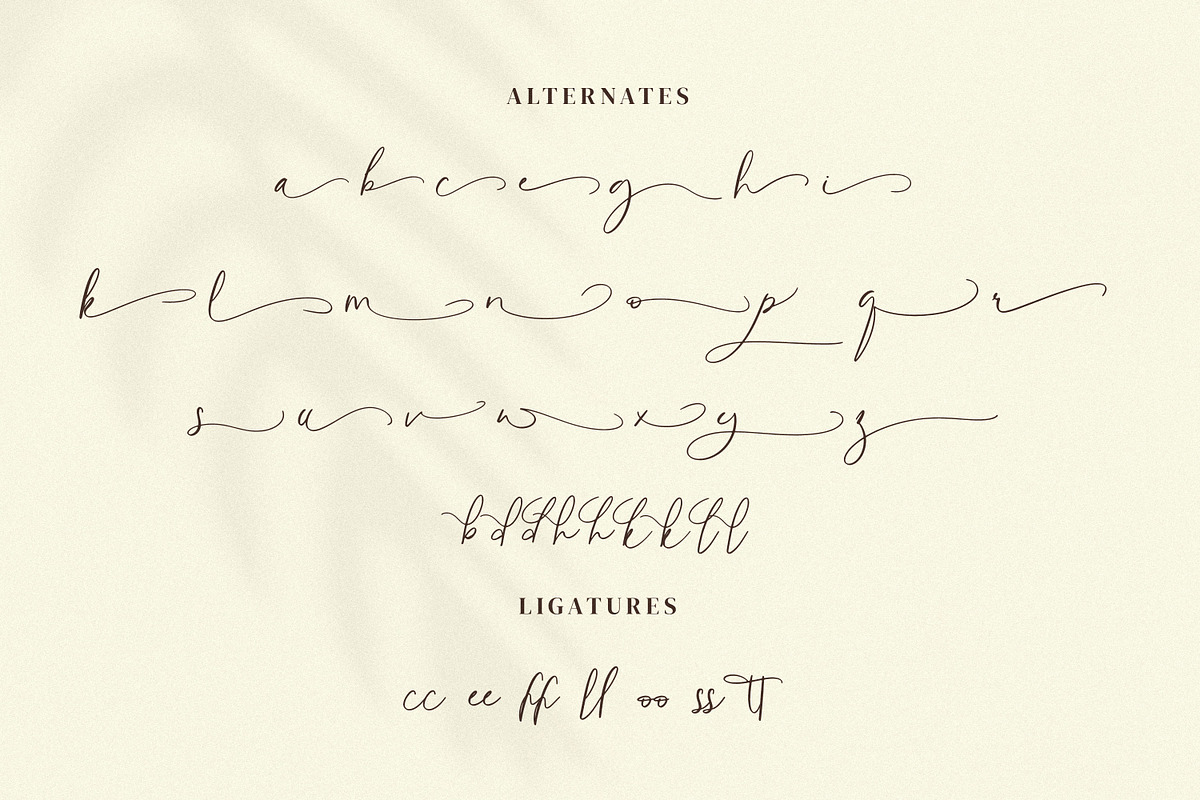 ALTERNATES
a b c e g h i
k l m n o p q r
s u v w x y z
b d d h h k k l l
LIGATURES
cc ee ff ll oo ss tt